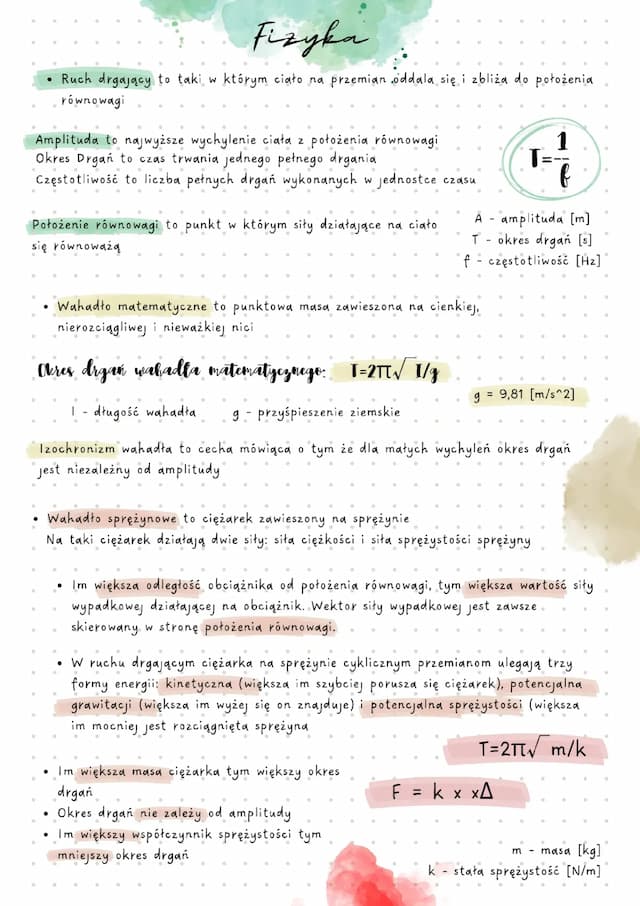 Fizyka
• Ruch drgający to taki w którym ciało na przemian oddala się i zbliża do położenia
równowagi
Amplituda to najwyższe wychylenie ciała z położenia równowagi
Okres Drgań to czas trwania jednego pełnego drgania
Częstotliwość to liczba pełnych drgań wykonanych w jednostce czasu
T=1/f
Położenie równowagi to punkt w którym siły działające na ciało
się równoważą
A - amplituda [m]
T - okres drgań [s]
f - częstotliwość [Hz]
• Wahadło matematyczne to punktowa masa zawieszona na cienkiej,
nierozciągliwej i nieważkiej nici
Okres drgań wahadła matematycznego: T=2π√ I/g
g = 9,81 [m/s^2]
l - długość wahadła g - przyśpieszenie ziemskie
Izochronizm wahadła to cecha mówiąca o tym że dla małych wychyleń okres drgań
jest niezależny od amplitudy
• Wahadło sprężynowe to ciężarek zawieszony na sprężynie
Na taki ciężarek działają dwie siły: siła ciężkości i siła sprężystości sprężyny
• Im większa odległość obciążnika od położenia równowagi, tym większa wartość siły
wypadkowej działającej na obciążnik. Wektor siły wypadkowej jest zawsze
skierowany w stronę położenia równowagi.
• W ruchu drgającym ciężarka na sprężynie cyklicznym przemianom ulegają trzy
formy energii: kinetyczna (większa im szybciej porusza się ciężarek), potencjalna
grawitacji (większa im wyżej się on znajduje) i potencjalna sprężystości (większa
im mocniej jest rozciągnięta sprężyna
T=2π√ m/k
• Im większa masa ciężarka tym większy okres
drgań
F = k x xΔ
• Okres drgań nie zależy od amplitudy
• Im większy współczynnik sprężystości tym
mniejszy okres drgań
m - masa [kg]
k - stała sprężystość [N/m]